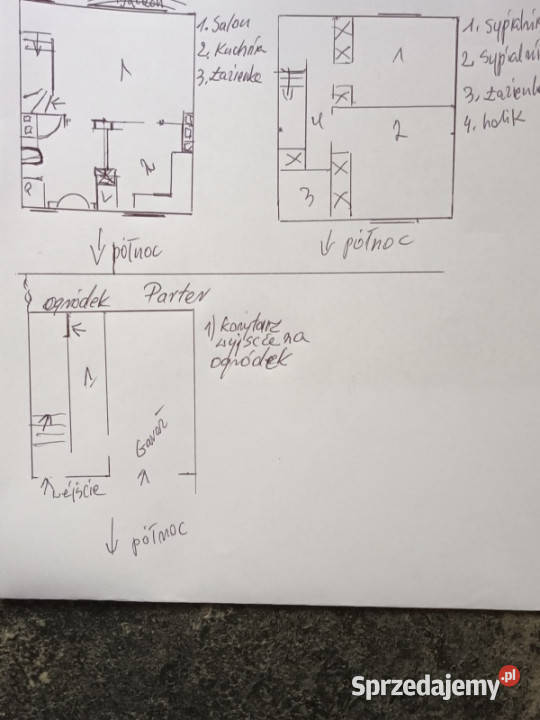 Balkon
1. Salon
2. Kuchnia
3, Łazienka
1
2
3
północ
1. Sypialnia
2. Sypialni
3, Łazienka
4. holik
1
2
4
3
północ
ogródek Parter
1) Korytarz
wyjście na
ogródek
1
Garaż
wejście
północ
Sprzedajemy.pl